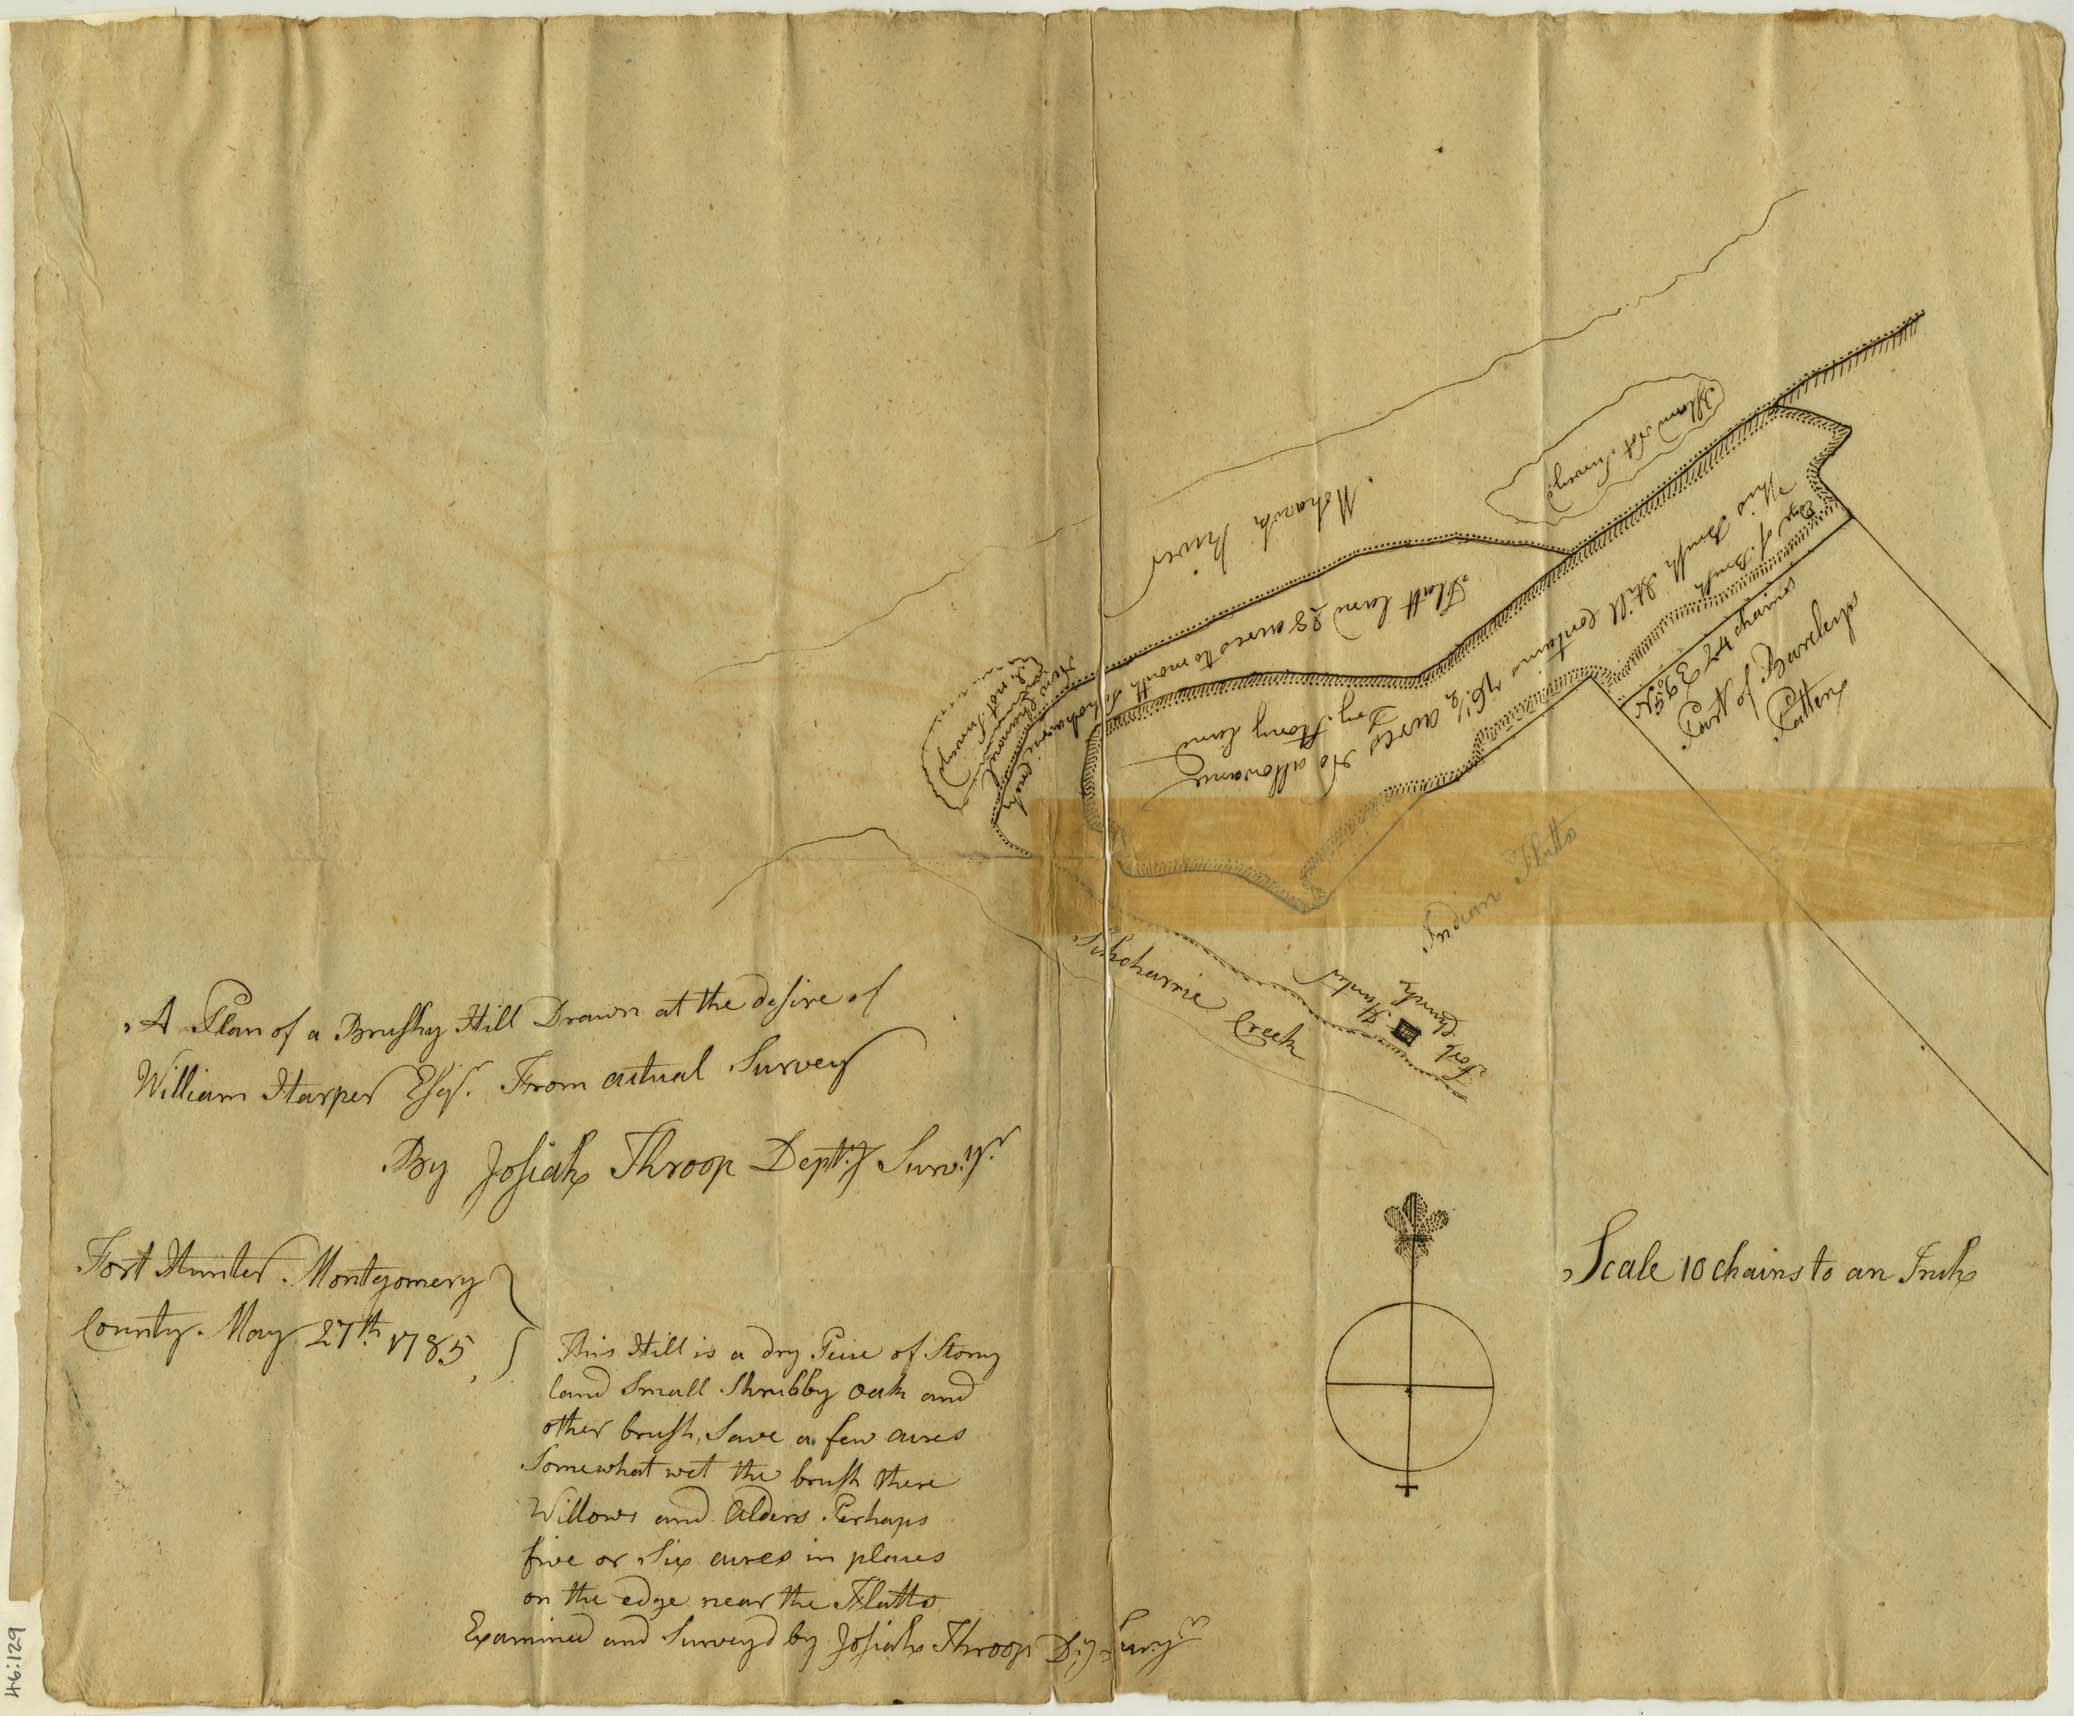 A Plan of a Brushy Hill Drawn at the desire of
William Harper Esqr. From actual Survey
By Josiah Throop Dept.y Surv.yr.
Fort Hunter Montgomery
County. May 27th. 1785,
This Hill is a dry Peice of Stony
land Small Shrubby Oak and
other brush, Save a few acres
Somewhat wet the brush there
Willows and Alders Perhaps
five or Six acres in places
on the edge near the Flatts
Examined and Survey'd by Josiah Throop D.y Surv.yr
Scale 10 chains to an Inch
Mohawk River
Island Not Survey'd
Flatt land 28 acres to mouth Schoharrie Creek
This Brush Hill Contains 76 1/2 acres No allowance
Dry Stony land
Edge of Brush
New Channel
not Survey'd
Schoharrie Creek
Indian Flatts
Fort Hunter
Church
Patten